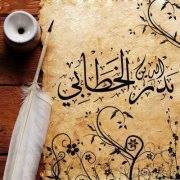 بدر الدين الخطابي